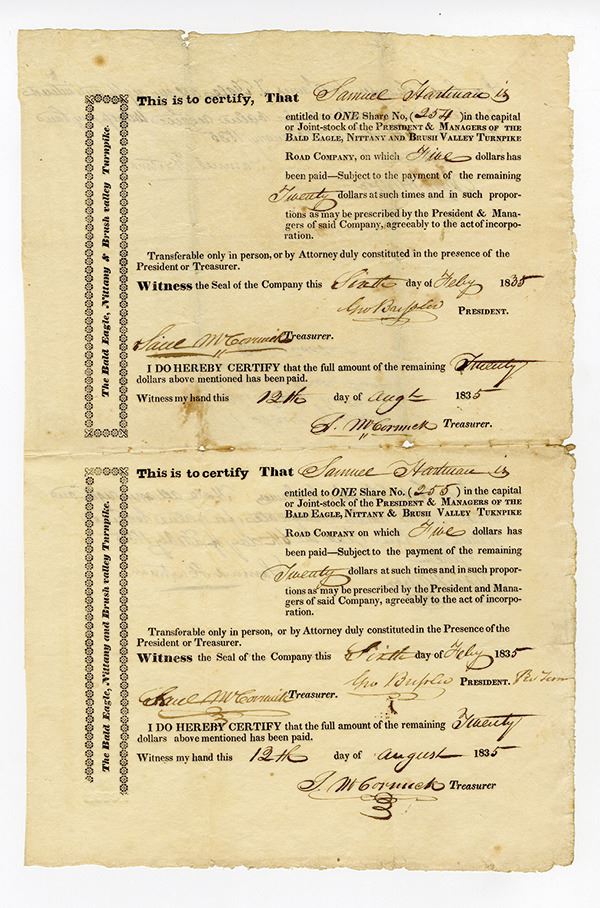 The Bald Eagle, Nittany & Brush valley Turnpike.
This is to certify, That Samuel Hartman is
entitled to ONE Share No, (254) in the capital
or Joint-stock of the PRESIDENT & MANAGERS OF THE
BALD EAGLE, NITTANY AND BRUSH VALLEY TURNPIKE
ROAD COMPANY, on which Five dollars has
been paid—Subject to the payment of the remaining
Twenty dollars at such times and in such propor-
tions as may be prescribed by the President & Mana-
gers of said Company, agreeably to the act of incorpo-
ration.
Transferable only in person, or by Attorney duly constituted in the presence of the
President or Treasurer.
Witness the Seal of the Company this Sixth day of Feby 1835
Geo PRESIDENT.
McCormick Treasurer.
I DO HEREBY CERTIFY that the full amount of the remaining Twenty
dollars above mentioned has been paid.
Witness my hand this 12th day of Augt 1835
S. McCormick Treasurer.
The Bald Eagle, Nittany and Brush valley Turnpike.
This is to certify That Samuel Hartman is
entitled to ONE Share No. (255) in the capital
or Joint-stock of the PRESIDENT & MANAGERS OF THE
BALD EAGLE, NITTANY & BRUSH VALLEY TUKNPIKE
ROAD COMPANY on which Five dollars has
been paid—Subject to the payment of the remaining
Twenty dollars at such times and in such propor-
tions as may be prescribed by the President and Mana-
gers of said Company, agreeably to the act of incorpo-
ration.
Transferable only in person, or by Attorney duly constituted in the Presence of the
President or Treasurer.
Witness the Seal of the Company this Sixth day of Feby 1835
Geo PRESIDENT. Pro Tem
McCormick Treasurer.
I DO HEREBY CERTIFY that the full amount of the remaining Twenty
dollars above mentioned has been paid.
Witness my hand this 12th day of August 1835
S. McCormick Treasurer